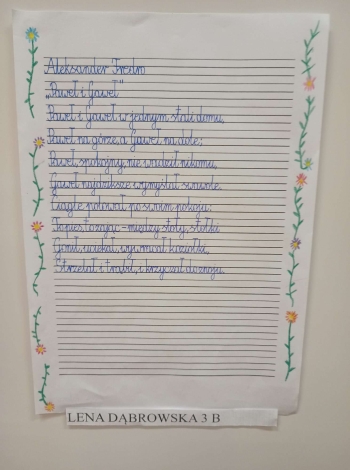 Aleksander Fredro
„Paweł i Gaweł"
Paweł i Gaweł w jednym stali domu,
Paweł na górze, a Gaweł na dole;
Paweł spokojny, nie wadził nikomu,
Gaweł najdziksze wymyślał swawole.
Ciągle polował po swoim pokoju:
To pies, to zając - między stoły, stołki
Gonił, uciekał, wywracał koziołki,
Strzelał i trąbił, i krzyczał do znoju.
LENA DĄBROWSKA 3 B